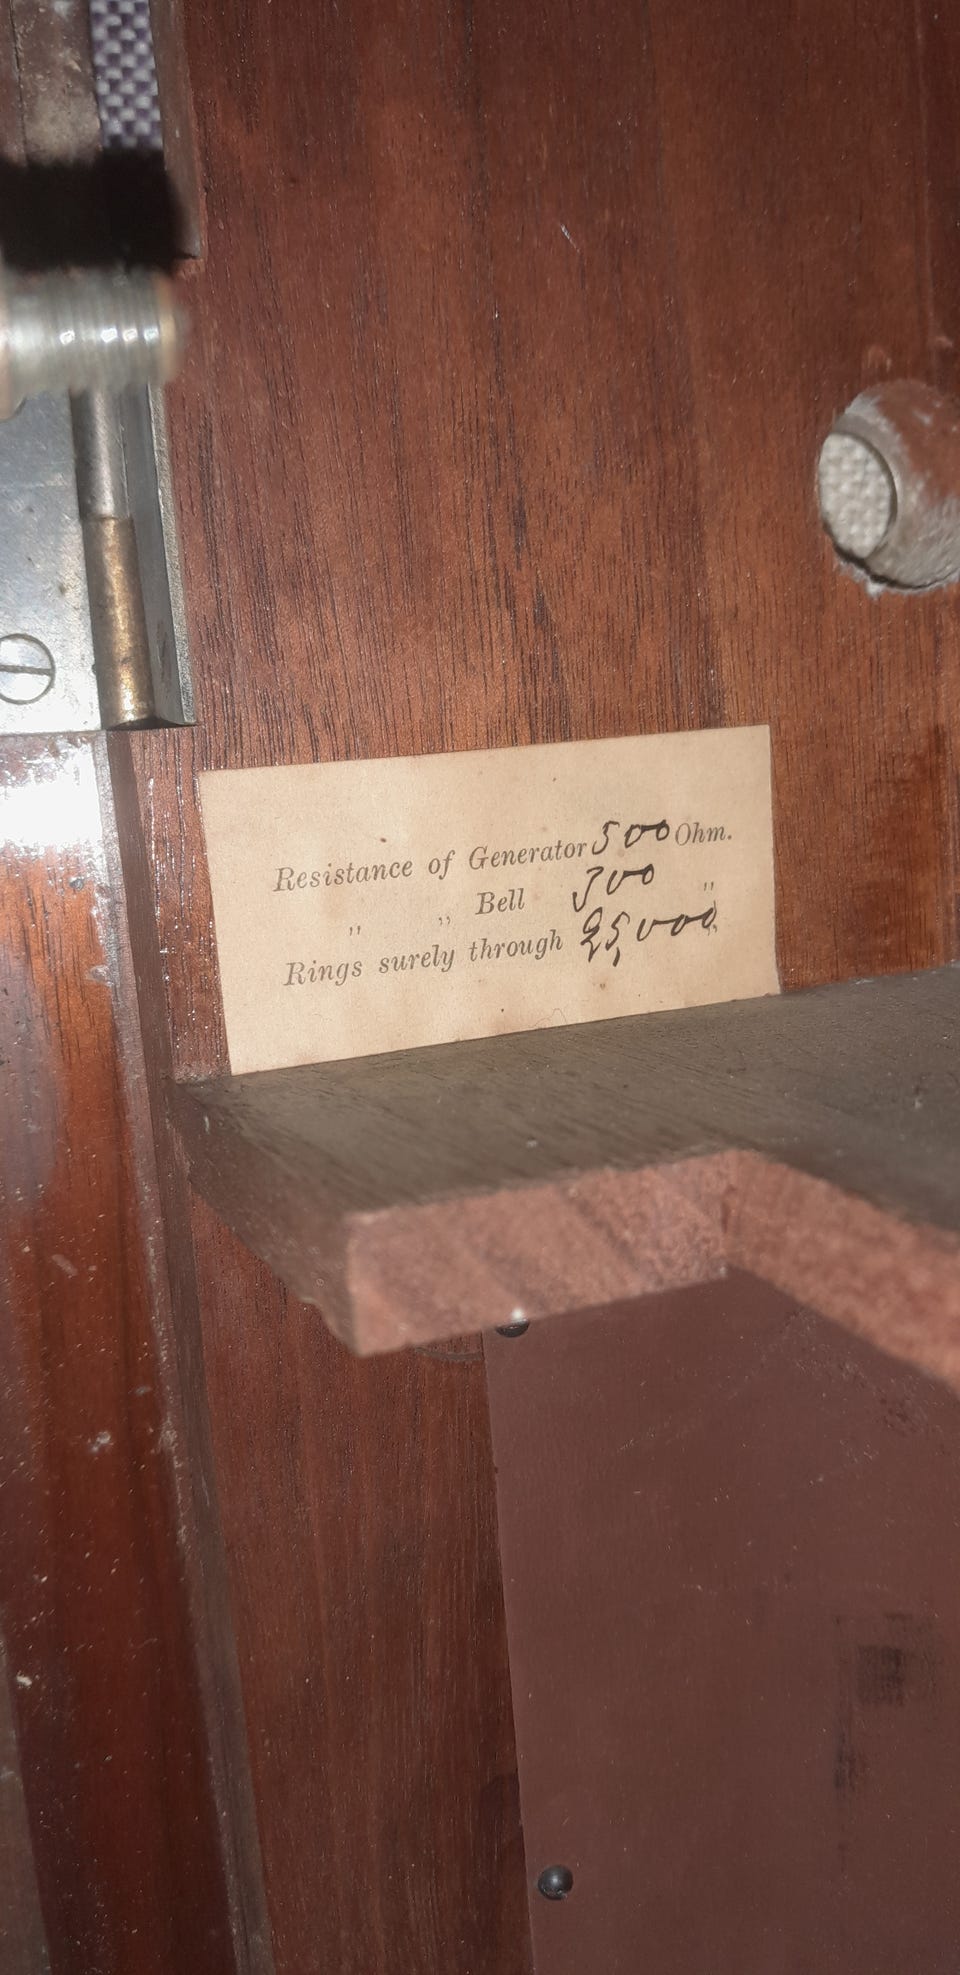 Resistance of Generator 500 Ohm.
„ „ Bell 300 „
Rings surely through 25,000 „